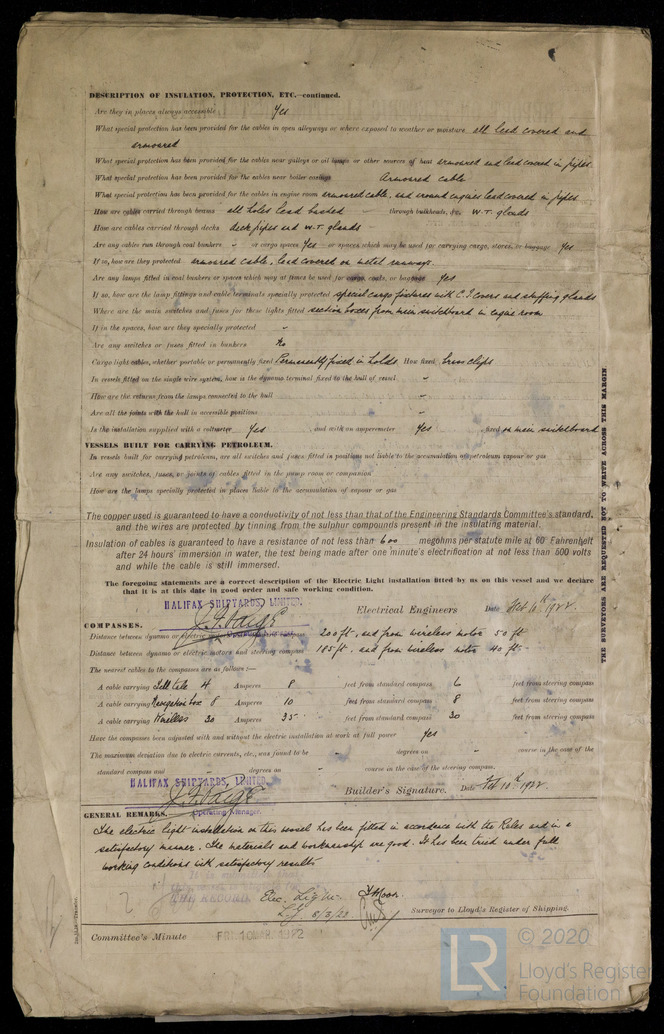 DESCRIPTION OF INSULATION, PROTECTION, ETC.—continued.
Are they in places always accessible Yes
What special protection has been provided for the cables in open alleyways or where exposed to weather or moisture all lead covered and
armoured
What special protection has been provided for the cables near galleys or oil lamps or other sources of heat armoured and lead covered in pipes
What special protection has been provided for the cables near boiler casings Armoured cable
What special protection has been provided for the cables in engine room armoured cable, and around engines lead covered in pipes
How are cables carried through beams all holes lead bushed through bulkheads, &c. W.T. glands
How are cables carried through decks deck pipes and W.T. glands
Are any cables run through coal bunkers - or cargo spaces Yes or spaces which may be used for carrying cargo, stores, or baggage Yes
If so, how are they protected armoured cable, lead covered on metal runways.
Are any lamps fitted in coal bunkers or spaces which may at times be used for cargo, coals, or baggage Yes
If so, how are the lamp fittings and cable terminals specially protected special cargo fixtures with C.I. covers and stuffing glands
Where are the main switches and fuses for these lights fitted section boxes from main switchboard in engine room
If in the spaces, how are they specially protected -
Are any switches or fuses fitted in bunkers No
Cargo light cables, whether portable or permanently fixed Permanently fixed in holds. How fixed, brass clips
In vessels fitted on the single wire system, how is the dynamo terminal fixed to the hull of vessel -
How are the returns from the lamps connected to the hull -
Are all the joints with the hull in accessible positions -
Is the installation supplied with a voltmeter Yes , and with an amperemeter Yes , fixed on main switchboard
VESSELS BUILT FOR CARRYING PETROLEUM.
In vessels built for carrying petroleum, are all switches and fuses fitted in positions not liable to the accumulation of petroleum vapour or gas
Are any switches, fuses, or joints of cables fitted in the pump room or companion
How are the lamps specially protected in places liable to the accumulation of vapour or gas
The copper used is guaranteed to have a conductivity of not less than that of the Engineering Standards Committee's standard,
and the wires are protected by tinning from the sulphur compounds present in the insulating material.
Insulation of cables is guaranteed to have a resistance of not less than 600 megohms per statute mile at 60° Fahrenheit
after 24 hours' immersion in water, the test being made after one minute's electrification at not less than 500 volts
and while the cable is still immersed.
The foregoing statements are a correct description of the Electric Light installation fitted by us on this vessel and we declare
that it is at this date in good order and safe working condition.
HALIFAX SHIPYARDS, LIMITED.
J. F. Paige Electrical Engineers Date Feb 10th 1922.
COMPASSES.
Distance between dynamo or electric motors and standard compass 200 ft, and from wireless motor 50 ft
Distance between dynamo or electric motors and steering compass 185 ft, and from wireless motor 40 ft
The nearest cables to the compasses are as follows:—
A cable carrying Tell tale 4 Amperes 8 feet from standard compass 6 feet from steering compass
A cable carrying Navigation box 8 Amperes 10 feet from standard compass 8 feet from steering compass
A cable carrying Wireless 30 Amperes 35 feet from standard compass 30 feet from steering compass
Have the compasses been adjusted with and without the electric installation at work at full power Yes
The maximum deviation due to electric currents, etc., was found to be - degrees on - course in the case of the
standard compass and - degrees on - course in the case of the steering compass.
HALIFAX SHIPYARDS, LIMITED.
J. F. Paige Builder's Signature. Date Feb 10th 1922
Operating Manager.
GENERAL REMARKS.
The electric light installation on this vessel has been fitted in accordance with the Rules and in a
satisfactory manner. The materials and workmanship are good. It has been tried under full
working conditions with satisfactory results
Elec. Light
Surveyor to Lloyd's Register of Shipping.
Committee's Minute FRI. 10 MAR. 1922
THE SURVEYORS ARE REQUESTED NOT TO WRITE ACROSS THIS MARGIN
LR © 2020
Lloyd's Register
Foundation